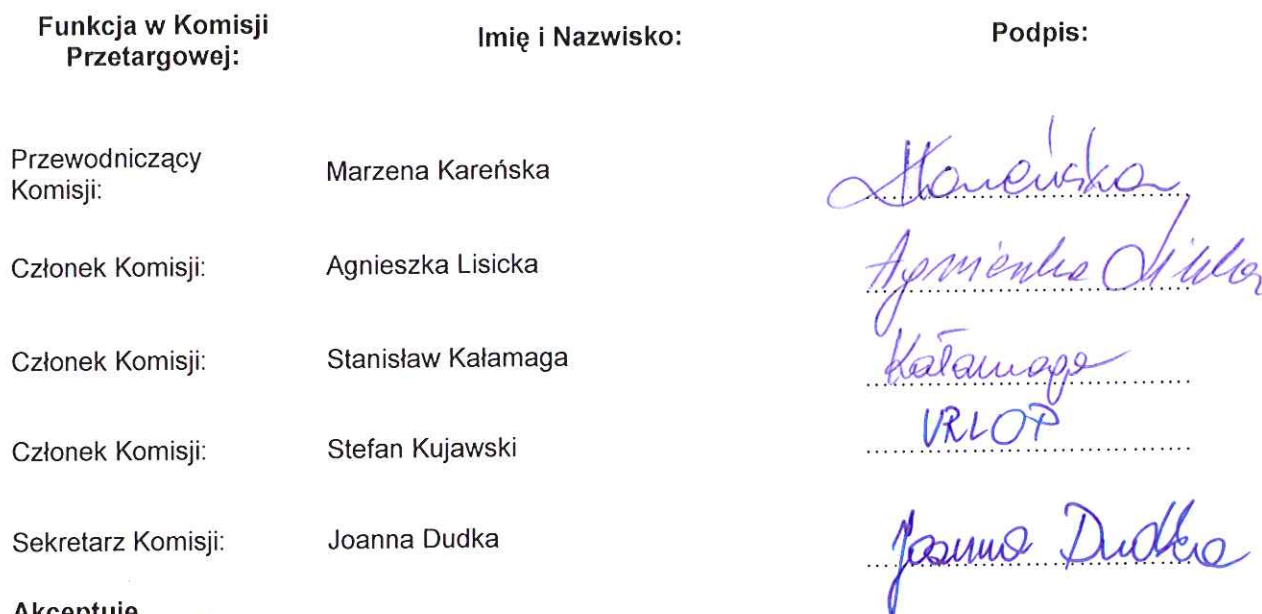 Funkcja w Komisji Imię i Nazwisko: Podpis:
Przetargowej:
Przewodniczący
Komisji: Marzena Kareńska Kareńska
Członek Komisji: Agnieszka Lisicka Agnieszka Lisicka
Członek Komisji: Stanisław Kałamaga Kałamaga
Członek Komisji: Stefan Kujawski URLOP
Sekretarz Komisji: Joanna Dudka Joanna Dudka
Akceptuję